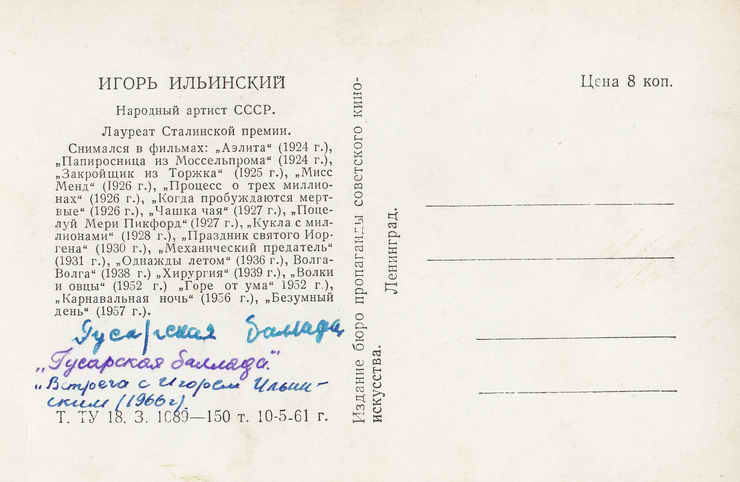 ИГОРЬ ИЛЬИНСКИЙ
Народный артист СССР.
Лауреат Сталинской премии.
Снимался в фильмах: „Аэлита“ (1924 г.),
„Папиросница из Моссельпрома“ (1924 г.),
„Закройщик из Торжка“ (1925 г.), „Мисс
Менд“ (1926 г.), „Процесс о трех миллио-
нах“ (1926 г.), „Когда пробуждаются мерт-
вые“ (1926 г.), „Чашка чая“ (1927 г.), „Поце-
луй Мери Пикфорд“ (1927 г.), „Кукла с мил-
лионами“ (1928 г.), „Праздник святого Иор-
гена“ (1930 г.), „Механический предатель“
(1931 г.), „Однажды летом“ (1936 г.), Волга-
Волга“ (1938 г.) „Хирургия“ (1939 г.), „Волки
и овцы“ (1952 г.) „Горе от ума“ 1952 г.),
„Карнавальная ночь“ (1956 г.), „Безумный
день“ (1957 г.).
Гусарская баллада
„Гусарская баллада“.
„Встреча с Игорем Ильин-
ским (1966г).
Т. ТУ 18. З. 1089—150 т. 10-5-61 г.
Издание бюро пропаганды советского кино-
искусства.
Ленинград.
Цена 8 коп.